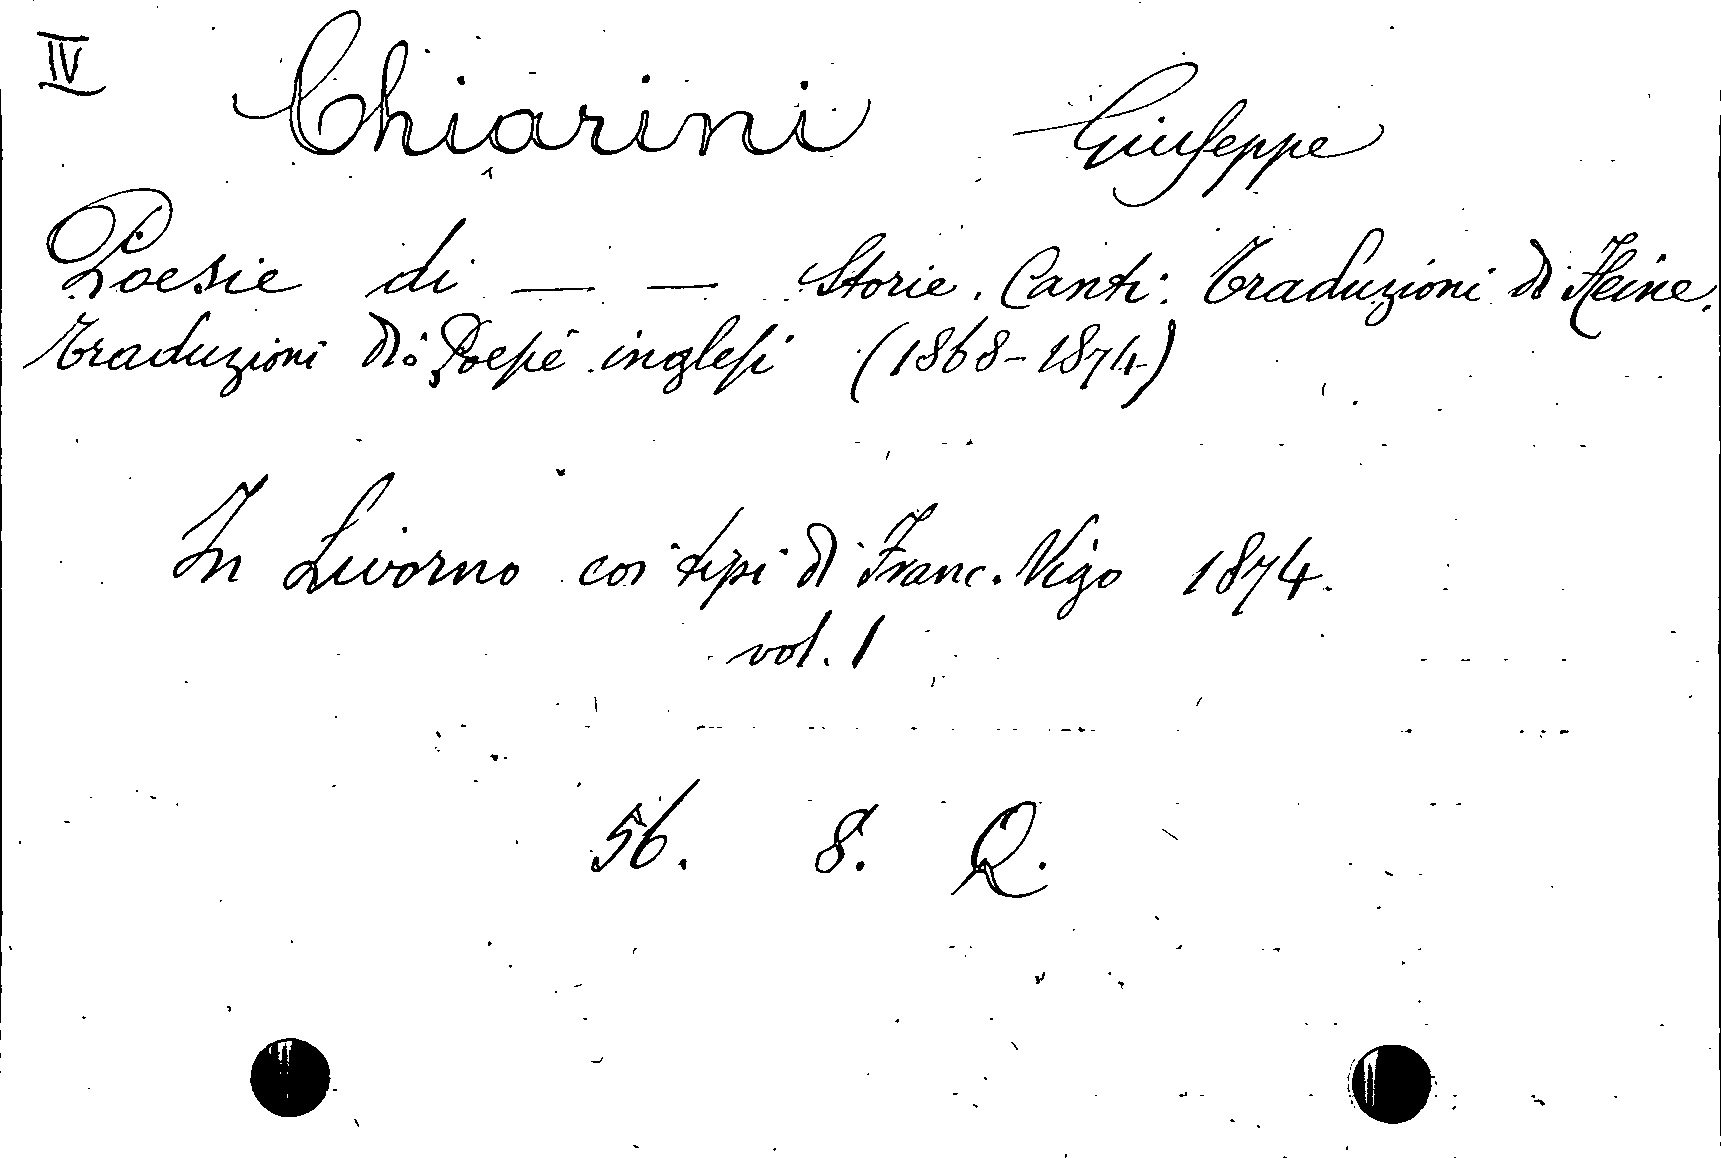 IV Chiarini Giuseppe
Poesie di — — Storie. Canti. Traduzioni di Heine.
Traduzioni di Poesie inglesi (1868-1874)
In Livorno coi tipi di Franc. Vigo 1874.
vol. 1
56. 8. Q.